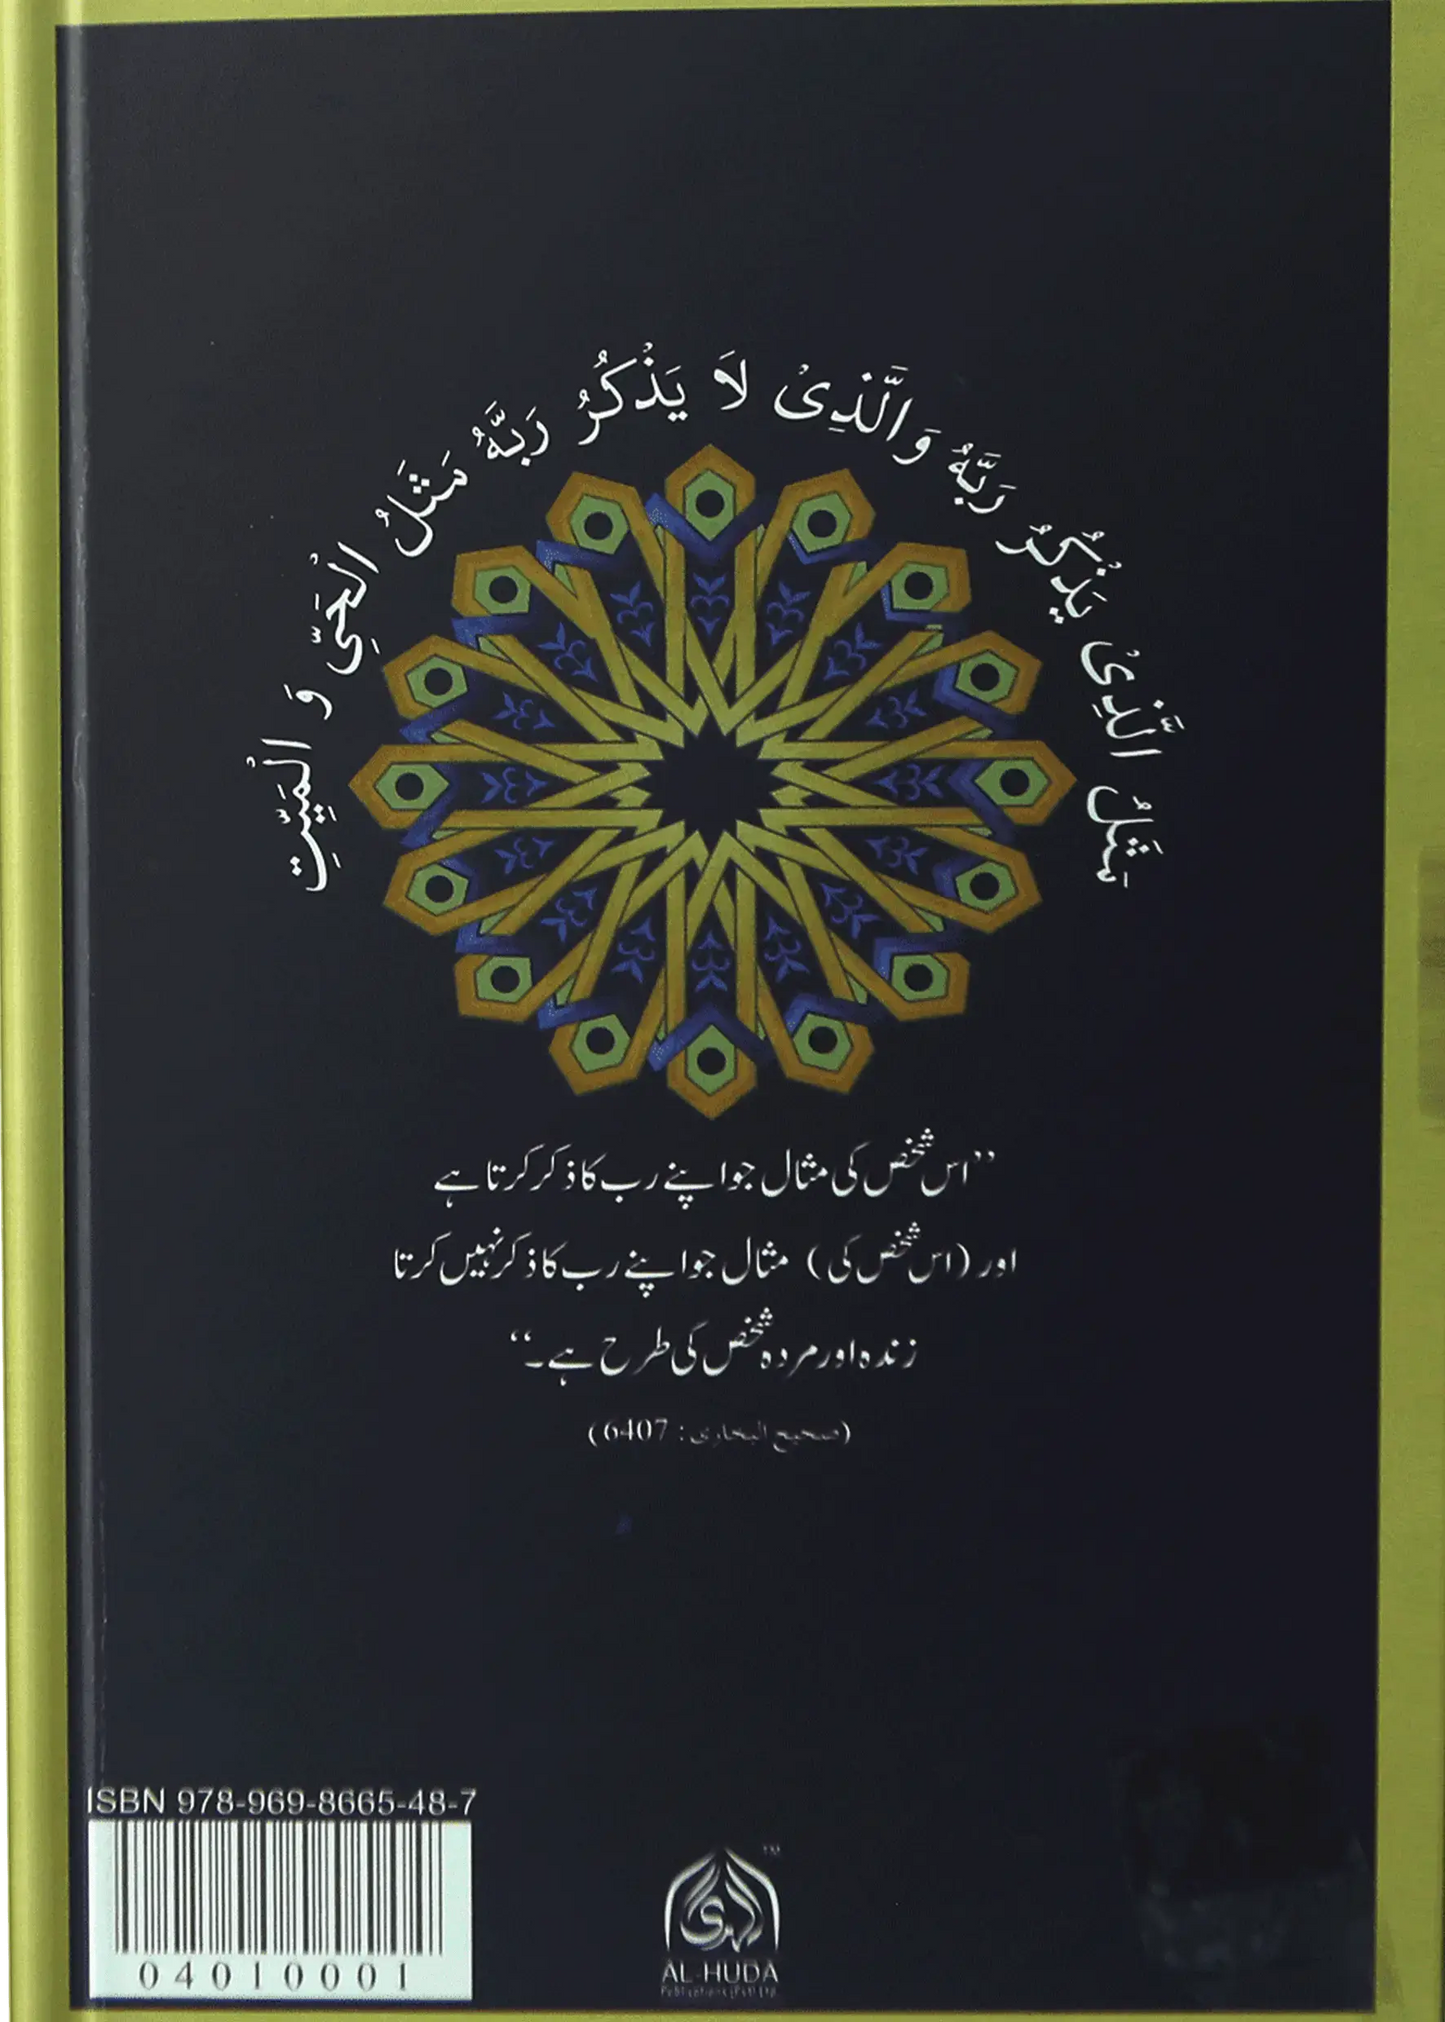 مَثَلُ الَّذِیْ یَذْکُرُ رَبَّهُ وَالَّذِیْ لَا یَذْکُرُ رَبَّهُ مَثَلُ الْحَیِّ وَ الْمَیِّتِ
’’اس شخص کی مثال جو اپنے رب کا ذکر کرتا ہے
اور (اس شخص کی) مثال جو اپنے رب کا ذکر نہیں کرتا
زندہ اور مردہ شخص کی طرح ہے۔‘‘
(صحیح البخاری: 6407)
ISBN 978-969-8665-48-7
04010001
الہدی
TM
AL-HUDA
Publications (Pvt) Ltd.